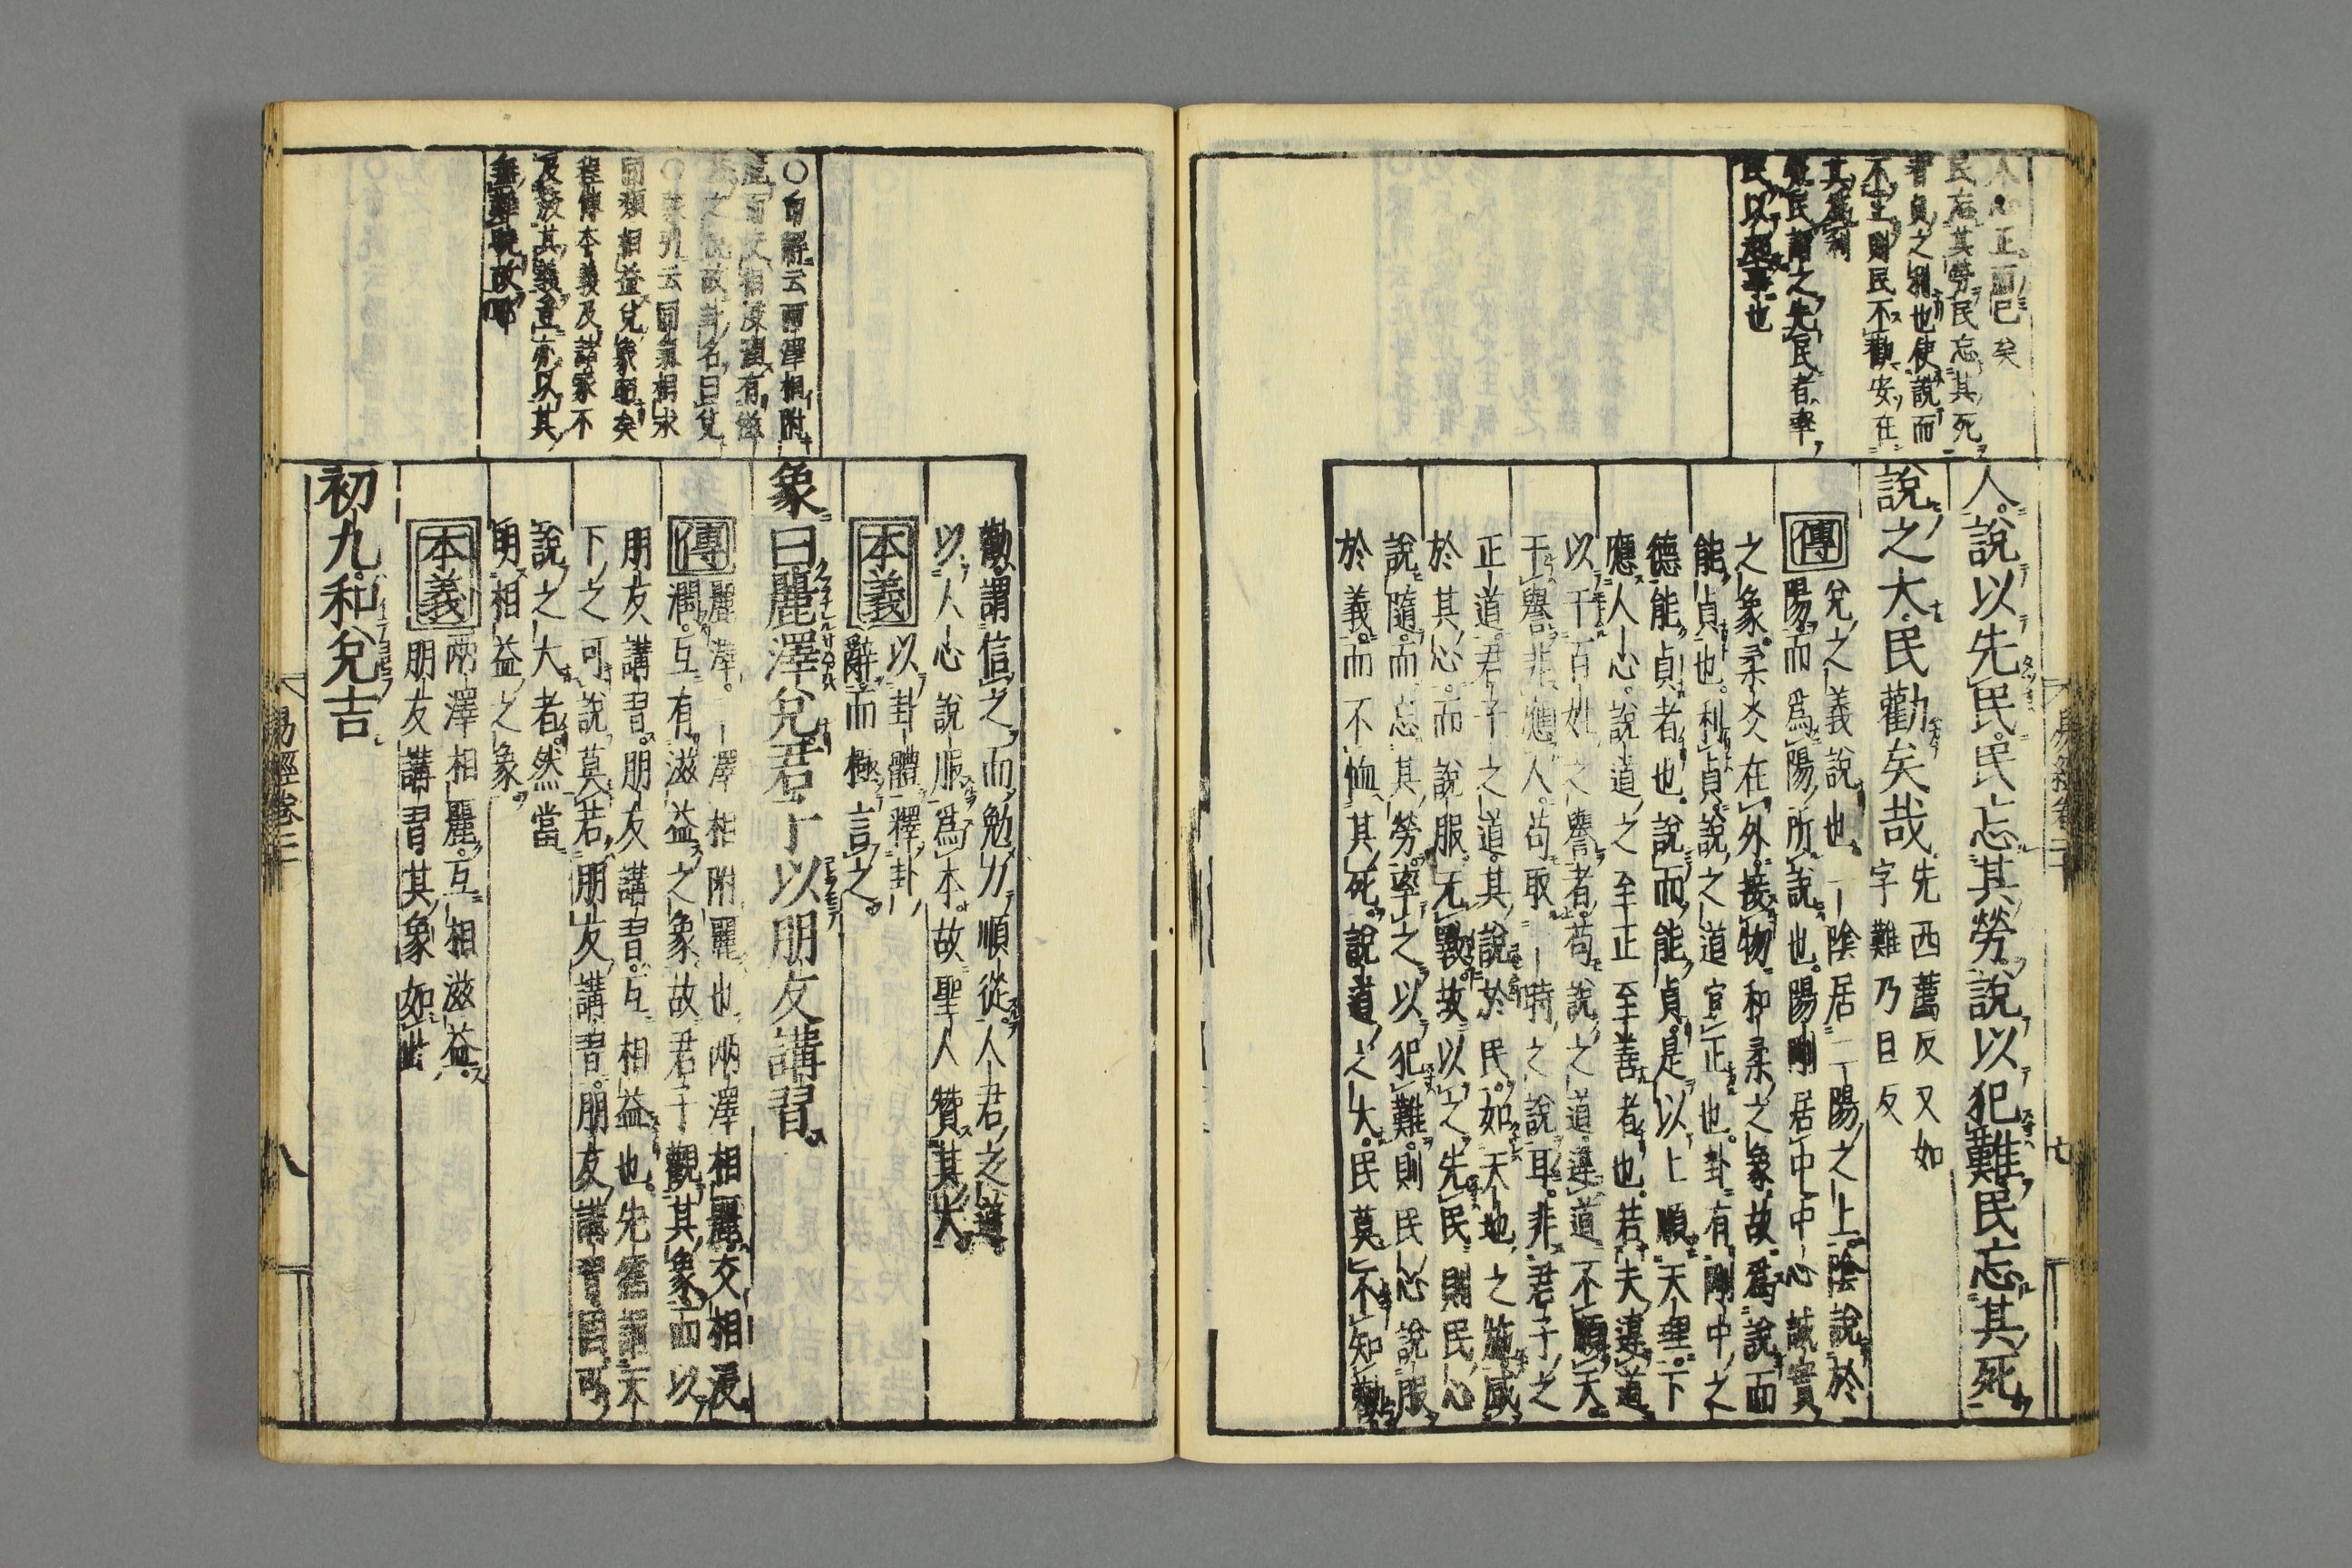 人心正而已矣
民忘其勞民忘其死
者貞之利也使說而
不正則民不勸安在
其爲利
是民謂之先民者率
民以趨事也
人說以先民民忘其勞說以犯難民忘其死
說之大民勸矣哉先西薦反又如
字難乃旦反
傳兌之義說也一陰居二陽之上陰說於
陽而爲陽所說也陽剛居中中心誠實
之象柔爻在外接物和柔之象故爲說而
能貞也利貞說之道宜正也卦有剛中之
德能貞者也說而能貞是以上順天理下
應人心說道之至正至善者也若夫違道
以干百姓之譽者苟說之道違道不順天
干譽非應人苟取一時之說耳非君子之
正道君子之道其說於民如天地之施感
於其心而說服无斁故以之先民則民心
說隨而忘其勞率之以犯難則民心說服
於義而不恤其死說道之大民莫不知勸
易經卷三
七
勸謂信之而勉力順從人君之道
以人心說服爲本故聖人贊其大
本義以卦體釋卦
辭而極言之
象曰麗澤兌君子以朋友講習
傳麗澤二澤相附麗也兩澤相麗交相浸
潤互有滋益之象故君子觀其象而以
朋友講習朋友講習互相益也先儒謂天
下之可說莫若朋友講習朋友講習固可
說之大者然當
明相益之象
本義兩澤相麗互相滋益
朋友講習其象如此
初九和兌吉
○

同類相益兌象明矣
程傳本義及諸家不
易經卷三
八